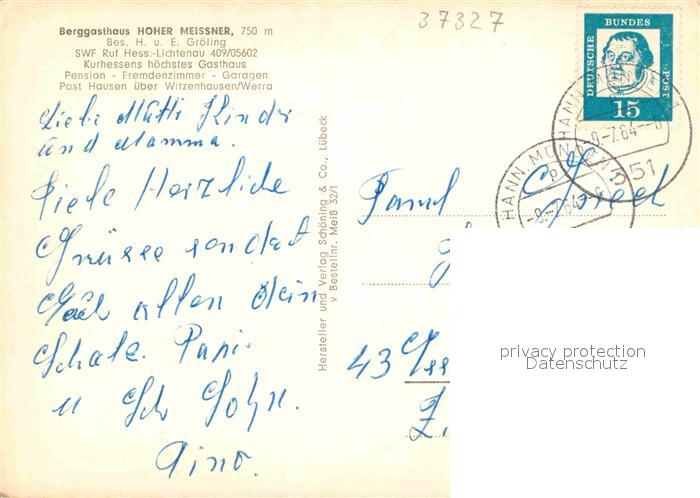 37327
Berggasthaus HOHER MEISSNER, 750 m
Bes. H. u. E. Gröling
SWF Ruf Hess.-Lichtenau 409/05602
Kurhessens höchstes Gasthaus
Pension - Fremdenzimmer - Garagen
Post Hausen über Witzenhausen/Werra
Liebe Mutti Kinder
und Mamma.
Viele Herzliche
Grüsse sendet
Euch allen Dein
Papi.
u
Hersteller und Verlag Schöning & Co., Lübeck
v Bestellnr. Meiß 32/1
DEUTSCHE BUNDES POST
15
HANN. MÜNDEN 1
-8.-7.64
351
HANN. MÜNDEN
-8.-7.64
43
privacy protection
Datenschutz